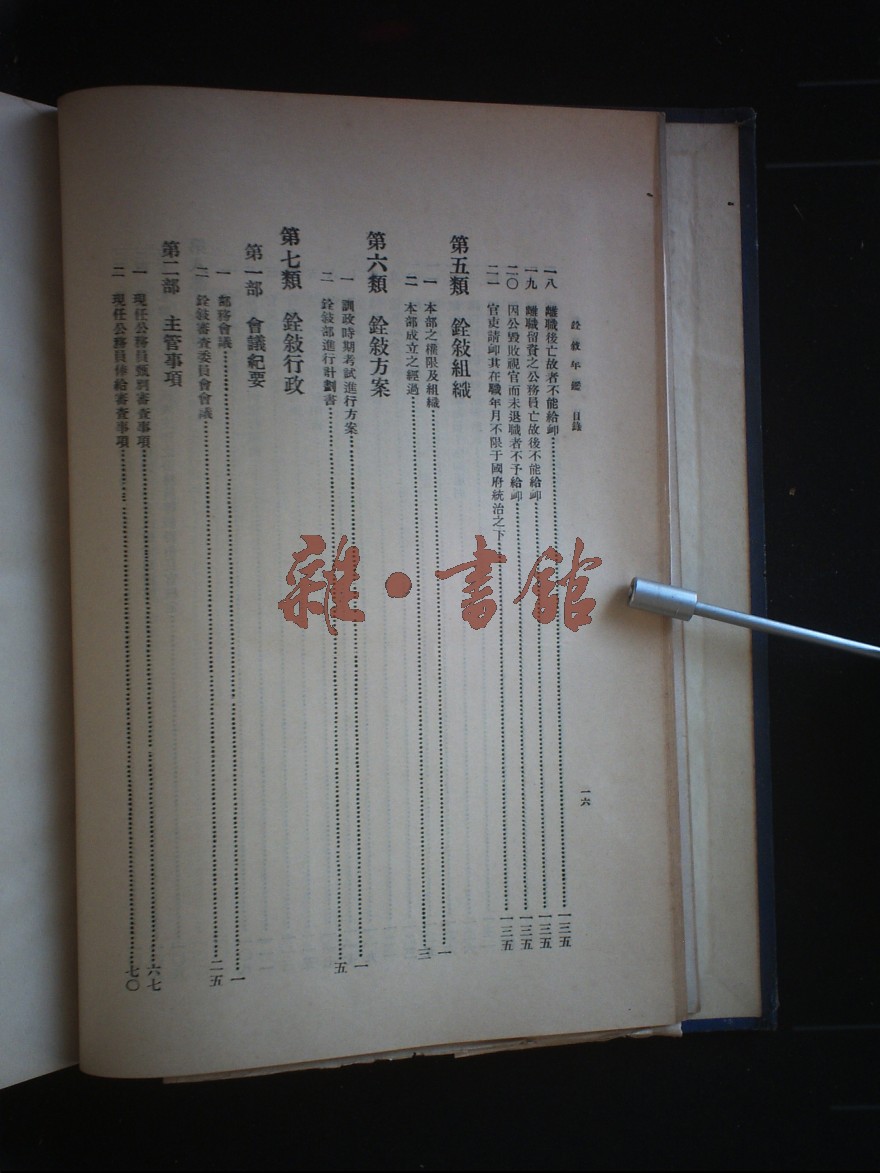 銓敘年鑑 目錄
一六
一八 離職後亡故者不能給卹……一三五
一九 離職留資之公務員亡故後不能給卹……一三五
二〇 因公毀敗視官而未退職者不予給卹……一三五
二一 官吏請卹其在職年月不限于國府統治之下……一三五
第五類 銓敍組織
一 本部之權限及組織……一
二 本部成立之經過……三
第六類 銓敍方案
一 訓政時期考試進行方案……一
二 銓敍部進行計劃書……五
第七類 銓敍行政
第一部 會議紀要
一 部務會議……一
二 銓敍審查委員會會議……二五
第二部 主管事項
一 現任公務員甄別審查事項……六七
二 現任公務員俸給審查事項……七〇
雜·書館